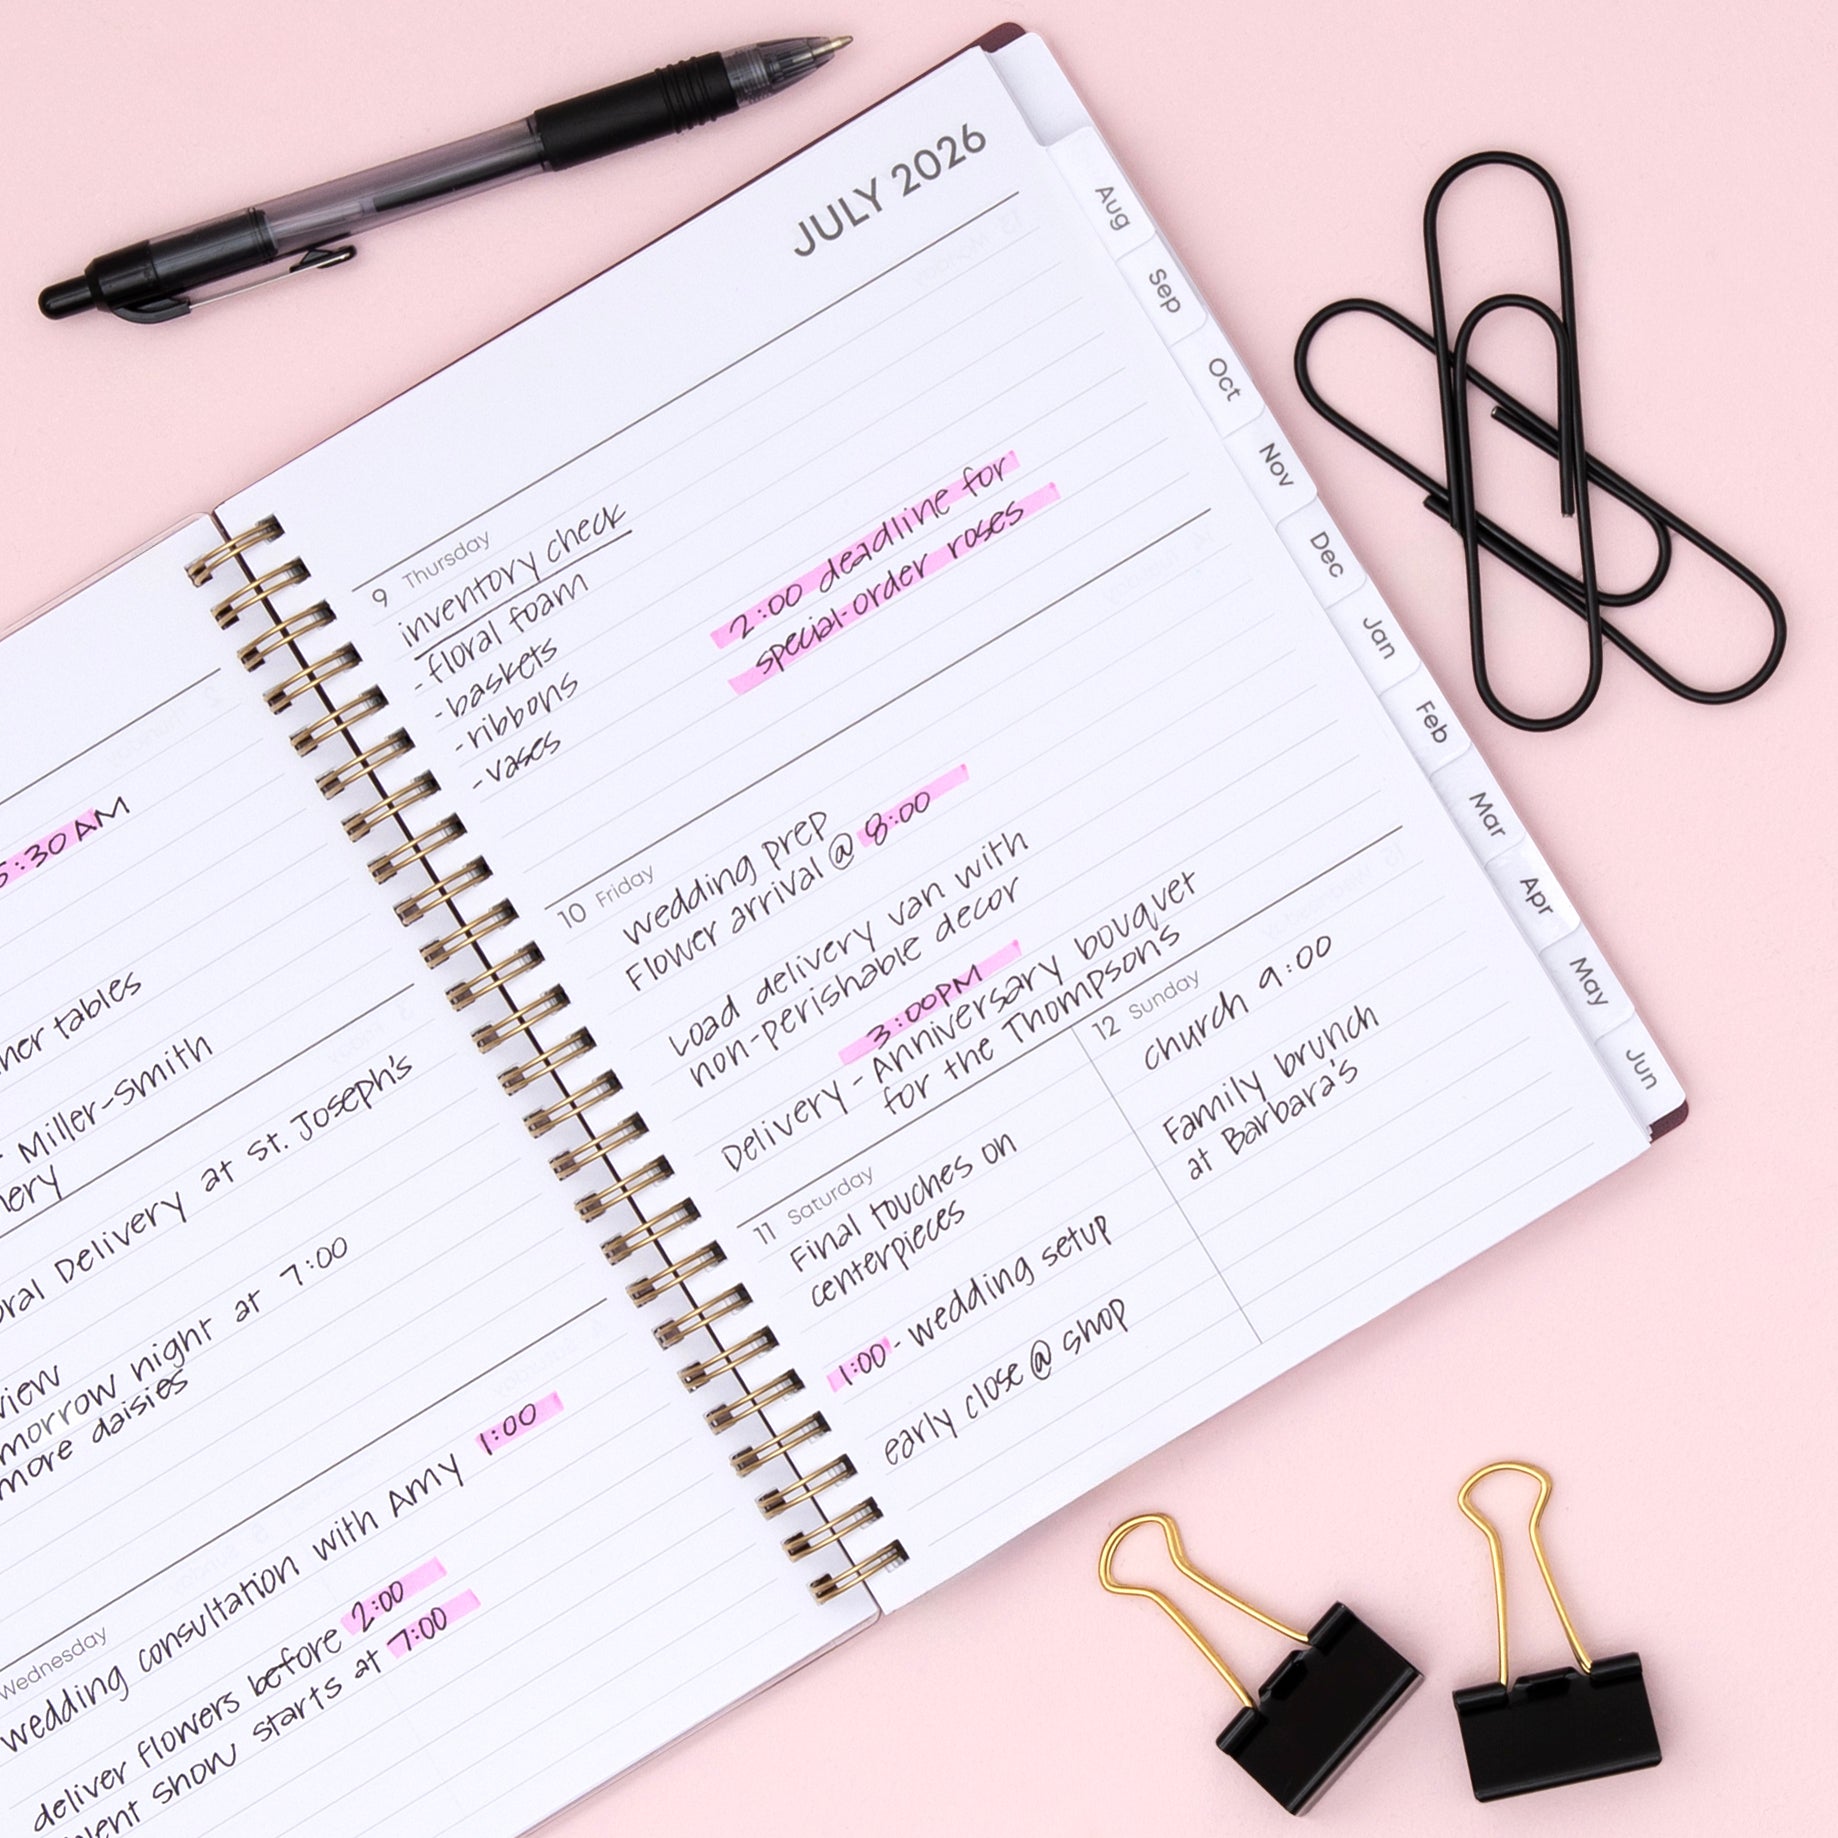 5:30 AM
tables
Miller-Smith
Delivery at St. Joseph's
night at 7:00
more daisies
wedding consultation with Amy 1:00
Wednesday
deliver flowers before 2:00
show starts at 7:00
JULY 2026
9 Thursday
inventory check
- floral foam
- baskets
- ribbons
- vases
2:00 deadline for
special-order roses
10 Friday
wedding prep
Flower arrival @ 8:00
Load delivery van with
non-perishable decor
3:00PM
Delivery - Anniversary bouquet
for the Thompsons
11 Saturday
Final touches on
centerpieces
1:00 - wedding setup
early close @ shop
12 Sunday
church 9:00
Family brunch
at Barbara's
Aug
Sep
Oct
Nov
Dec
Jan
Feb
Mar
Apr
May
Jun